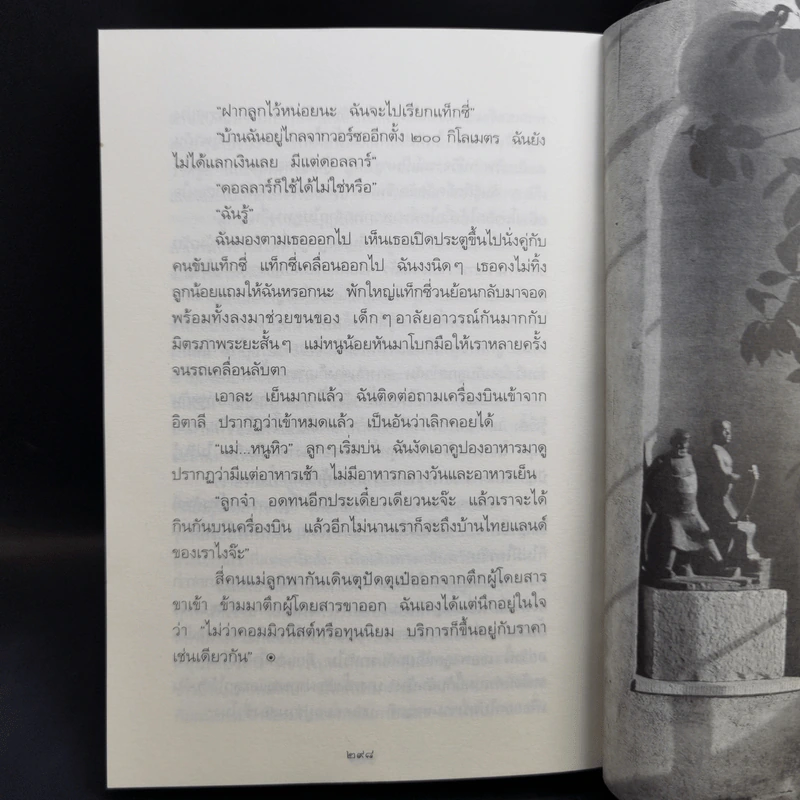 "ฝากลูกไว้หน่อยนะ ฉันจะไปเรียกแท็กซี่"
"บ้านฉันอยู่ไกลจากวอร์ซออีกตั้ง ๒๐๐ กิโลเมตร ฉันยัง
ไม่ได้แลกเงินเลย มีแต่ดอลลาร์"
"ดอลลาร์ก็ใช้ได้ไม่ใช่หรือ"
"ฉันรู้"
ฉันมองตามเธอออกไป เห็นเธอเปิดประตูขึ้นไปนั่งคู่กับ
คนขับแท็กซี่ แท็กซี่เคลื่อนออกไป ฉันงงนิดๆ เธอคงไม่ทิ้ง
ลูกน้อยแถมให้ฉันหรอกนะ พักใหญ่แท็กซี่วนย้อนกลับมาจอด
พร้อมทั้งลงมาช่วยขนของ เด็กๆ อาลัยอาวรณ์กันมากกับ
มิตรภาพระยะสั้นๆ แม่หนูน้อยหันมาโบกมือให้เราหลายครั้ง
จนรถเคลื่อนลับตา
เอาละ เย็นมากแล้ว ฉันติดต่อถามเครื่องบินเข้าจาก
อิตาลี ปรากฏว่าเข้าหมดแล้ว เป็นอันว่าเลิกคอยได้
"แม่...หนูหิว" ลูกๆ เริ่มบ่น ฉันงัดเอาคูปองอาหารมาดู
ปรากฏว่ามีแต่อาหารเช้า ไม่มีอาหารกลางวันและอาหารเย็น
"ลูกจ๋า อดทนอีกประเดี๋ยวเดียวนะจ๊ะ แล้วเราจะได้
กินกันบนเครื่องบิน แล้วอีกไม่นานเราก็จะถึงบ้านไทยแลนด์
ของเราไงจ๊ะ"
สี่คนแม่ลูกพากันเดินตุปัดตุเป๋ออกจากตึกผู้โดยสาร
ขาเข้า ข้ามมาตึกผู้โดยสารขาออก ฉันเองได้แต่นึกอยู่ในใจ
ว่า "ไม่ว่าคอมมิวนิสต์หรือทุนนิยม บริการก็ขึ้นอยู่กับราคา
เช่นเดียวกัน" ๏
๒๙๘